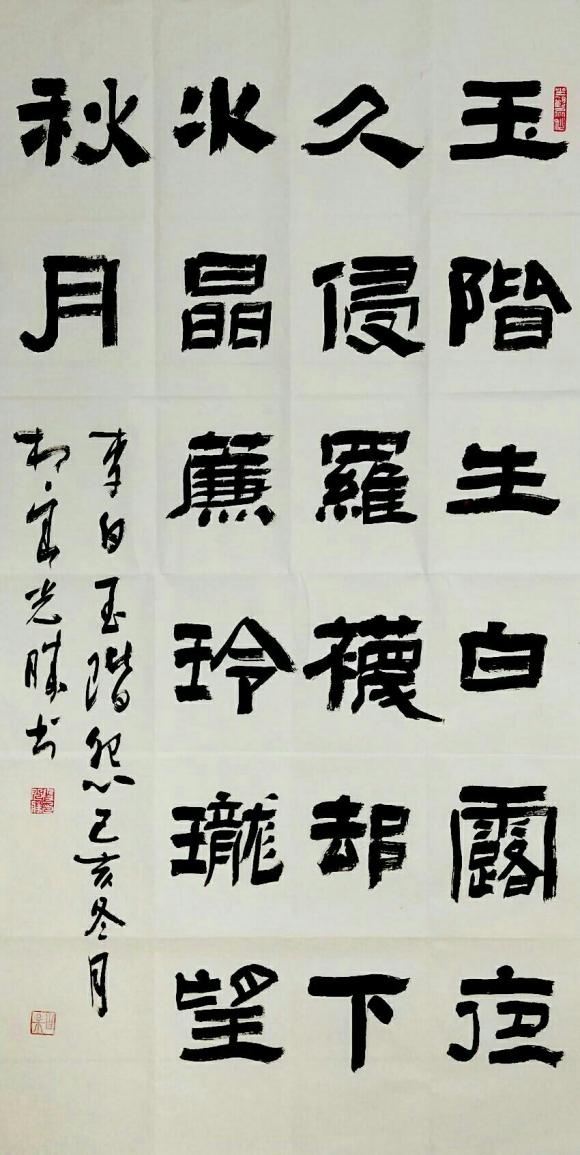 玉階生白露夜
久侵羅襪却下
水晶薕玲瓏望
秋月
李白玉階怨己亥冬月
光勝书